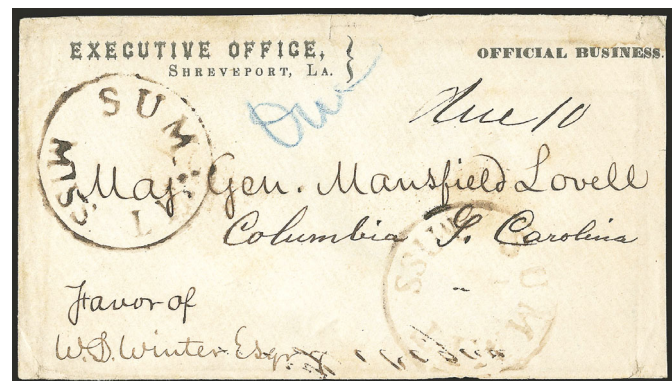 EXECUTIVE OFFICE,
SHREVEPORT, LA.
OFFICIAL BUSINESS.
Due
Due 10
SUMMIT
MISS
Maj. Gen. Mansfield Lovell
Columbia S. Carolina
Favor of
W.S. Winter Esqr